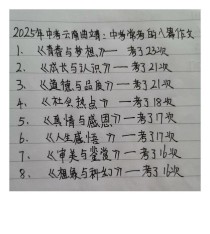 2025年中考云南曲靖:中考常考的八篇作文
1、《青春与梦想》一考了23次
2、《成长与认识》一考了21次
3、《道德与品质》一考了21次
4、《社会热点》一考了18次
5、《亲情与感恩》一考了17次
6、《人生感悟》一考了17次
7、《审美与鉴赏》一考了16次
8、《想象与科幻》一考了16次